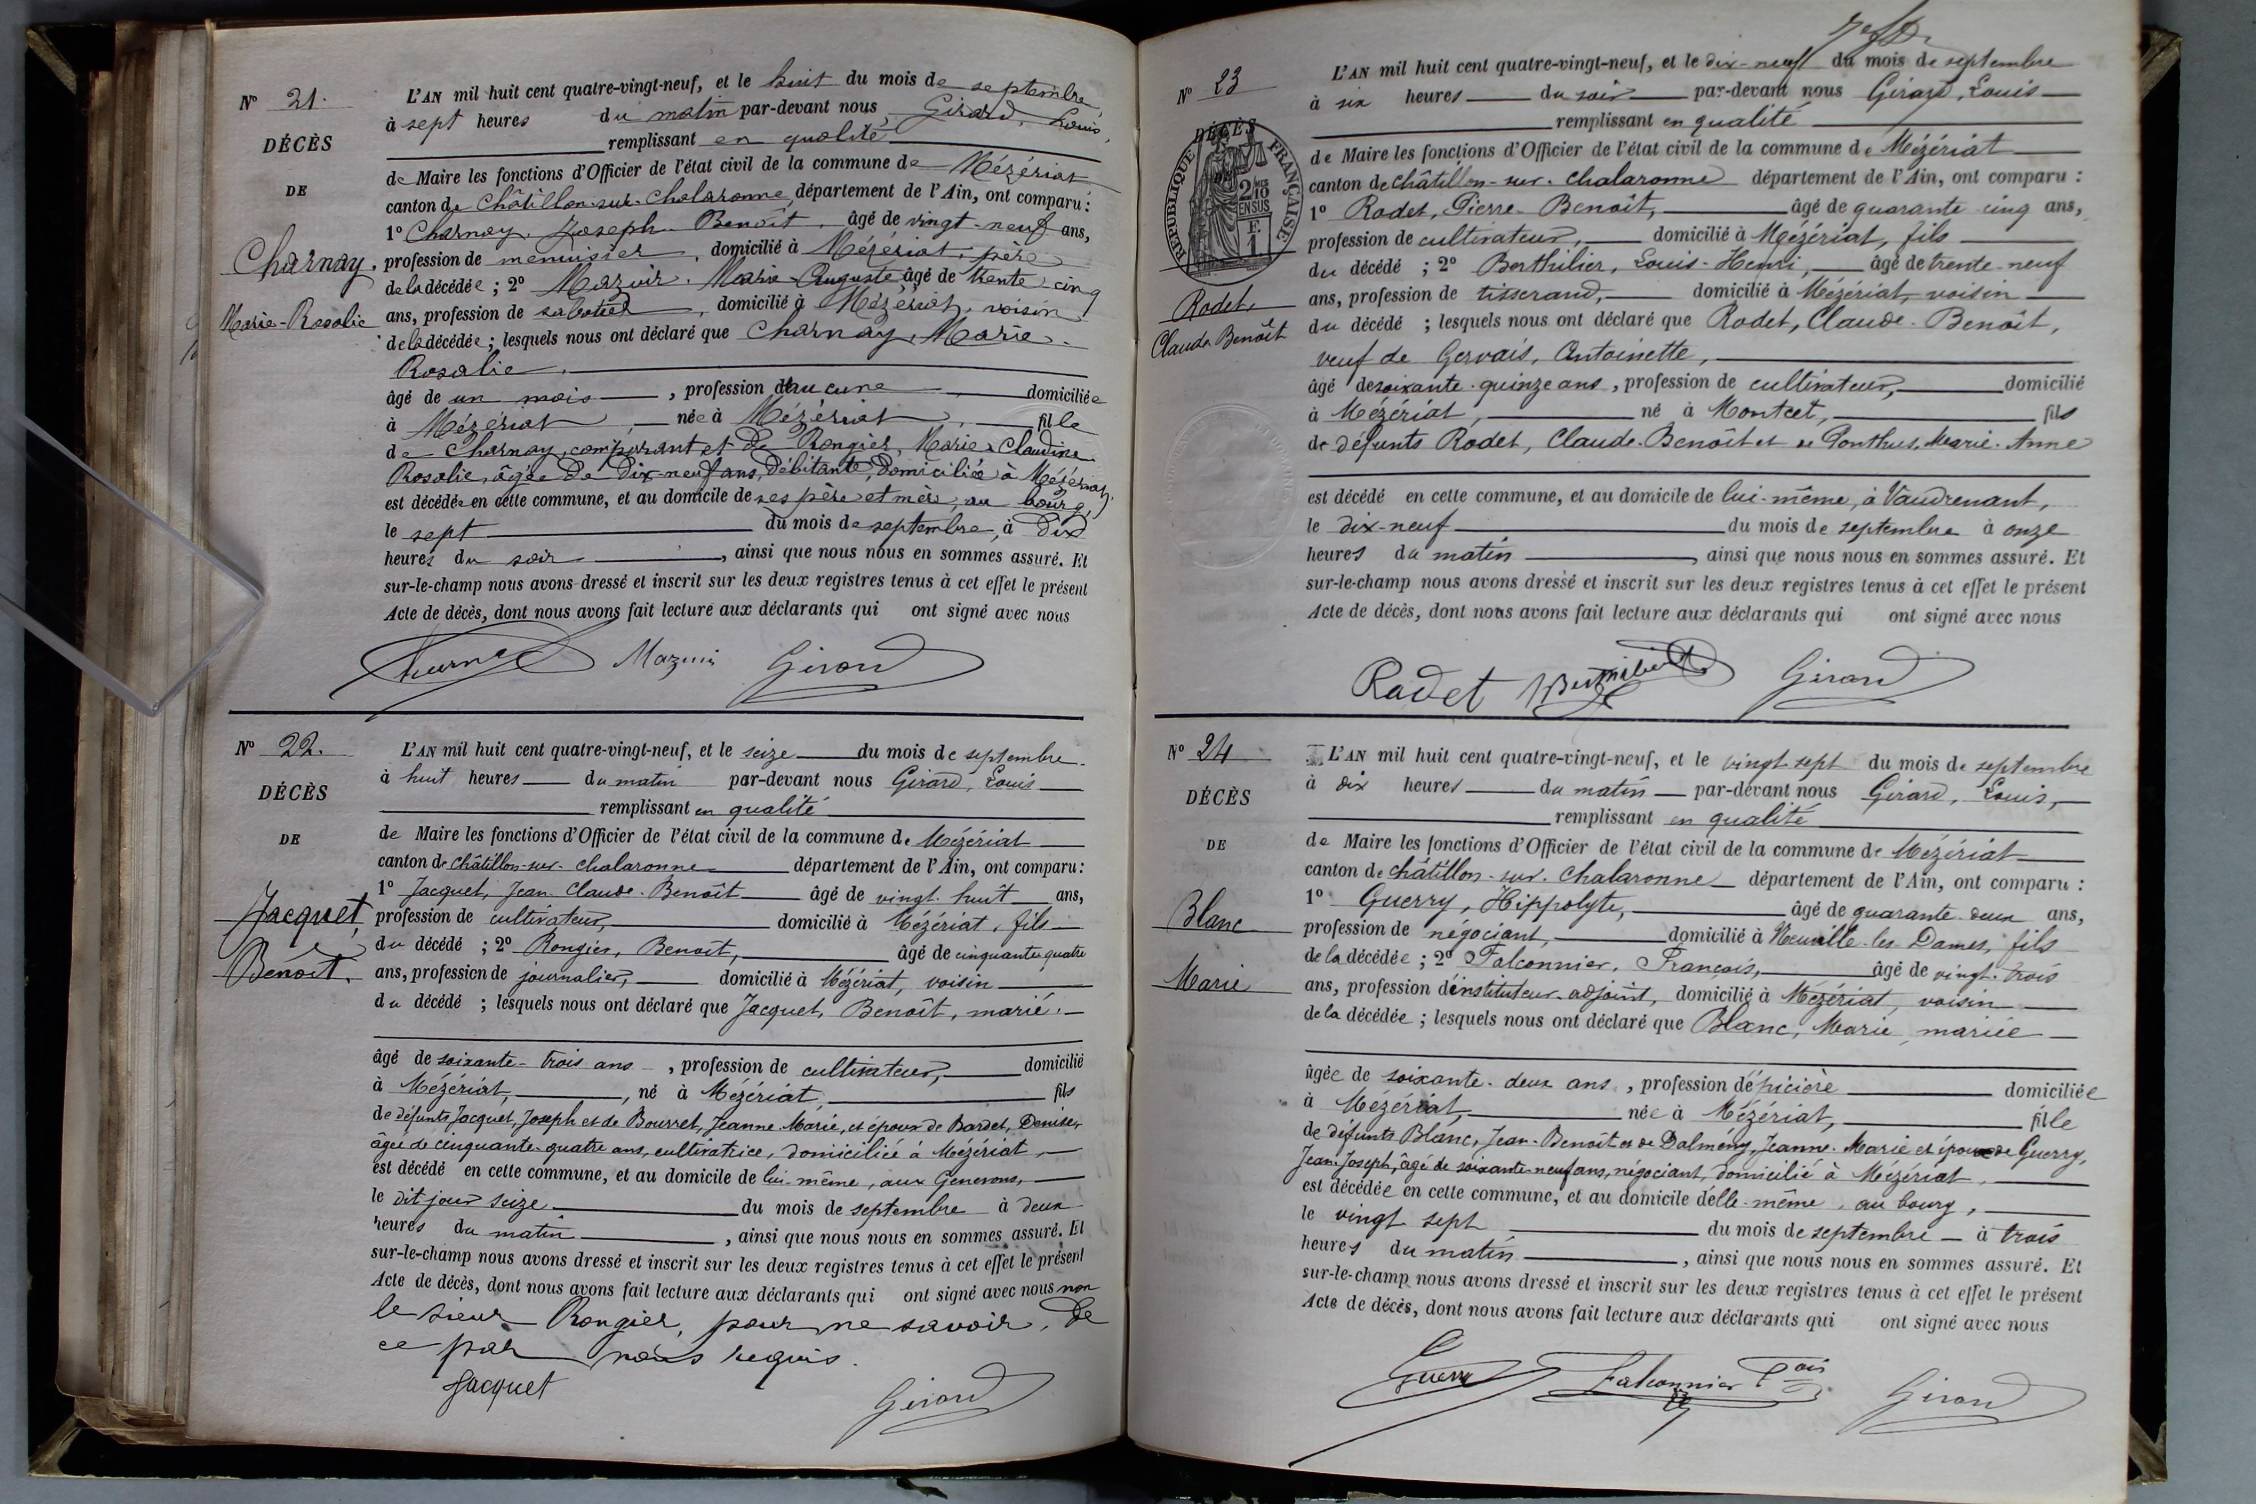 N° 21.
DÉCÈS
DE
Charnay,
Marie-Rosalie
L'AN mil huit cent quatre-vingt-neuf, et le huit du mois de septembre,
à sept heures du matin par-devant nous, Girard, Louis,
remplissant en qualité
de Maire les fonctions d'Officier de l'état civil de la commune de Mézériat
canton de Châtillon-sur-Chalaronne, département de l'Ain, ont comparu :
1° Charnay, Joseph-Benoît, âgé de vingt-neuf ans,
profession de menuisier, domicilié à Mézériat, père
de la décédée ; 2° Mazuir, Marie-Auguste âgé de trente cinq
ans, profession de sabotier, domicilié à Mézériat, voisin
de la décédée ; lesquels nous ont déclaré que Charnay, Marie-
Rosalie,
âgé de un mois, profession d'aucune domiciliée
à Mézériat, née à Mézériat, fille
de Charnay, comparant et de Rongier, Marie-Claudine
Rosalie, âgée de dix-neuf ans, débitante, domiciliée à Mézériat,
est décédée en cette commune, et au domicile de ses père et mère, au bourg,
le sept du mois de septembre, à dix
heures du soir, ainsi que nous nous en sommes assuré. Et
sur-le-champ nous avons dressé et inscrit sur les deux registres tenus à cet effet le présent
Acte de décès, dont nous avons fait lecture aux déclarants qui ont signé avec nous
Charnay Mazuir Girard
N° 22.
DÉCÈS
DE
Jacquet,
Benoît.
L'AN mil huit cent quatre-vingt-neuf, et le seize du mois de septembre
à huit heures du matin par-devant nous Girard, Louis
remplissant en qualité
de Maire les fonctions d'Officier de l'état civil de la commune de Mézériat
canton de Châtillon-sur-Chalaronne département de l'Ain, ont comparu :
1° Jacquet, Jean-Claude-Benoît âgé de vingt-huit ans,
profession de cultivateur, domicilié à Mézériat, fils
du décédé ; 2° Rongier, Benoît, âgé de cinquante quatre
ans, profession de journalier, domicilié à Mézériat, voisin
du décédé ; lesquels nous ont déclaré que Jacquet, Benoît, marié,
âgé de soixante-trois ans, profession de cultivateur, domicilié
à Mézériat, né à Mézériat, fils
de défunts Jacquet, Joseph et de Bourret, Jeanne-Marie, et époux de Bardet, Denise,
âgée de cinquante-quatre ans, cultivatrice, domiciliée à Mézériat,
est décédé en cette commune, et au domicile de lui-même, aux Generons,
le dit jour seize du mois de septembre à deux
heures du matin, ainsi que nous nous en sommes assuré. Et
sur-le-champ nous avons dressé et inscrit sur les deux registres tenus à cet effet le présent
Acte de décès, dont nous avons fait lecture aux déclarants qui ont signé avec nous non
le sieur Rongier, pour ne savoir, de
ce par nous requis.
Jacquet Girard
N° 23
DÉCÈS
RÉPUBLIQUE FRANÇAISE
2/10 EN SUS
Rodet,
Claude Benoît
L'AN mil huit cent quatre-vingt-neuf, et le dix-neuf du mois de septembre
à six heures du soir par-devant nous Girard, Louis
remplissant en qualité
de Maire les fonctions d'Officier de l'état civil de la commune de Mézériat
canton de Châtillon-sur-Chalaronne département de l'Ain, ont comparu :
1° Rodet, Pierre-Benoît, âgé de quarante cinq ans,
profession de cultivateur, domicilié à Mézériat, fils
du décédé ; 2° Berthilier, Louis-Henri, âgé de trente-neuf
ans, profession de tisserand, domicilié à Mézériat, voisin
du décédé ; lesquels nous ont déclaré que Rodet, Claude-Benoît,
veuf de Gervais, Antoinette,
âgé de soixante-quinze ans, profession de cultivateur, domicilié
à Mézériat, né à Montcet, fils
de défunts Rodet, Claude-Benoît et de Ponthus, Marie-Anne
est décédé en cette commune, et au domicile de lui-même, à Vaudrenant,
le dix-neuf du mois de septembre à onze
heures du matin, ainsi que nous nous en sommes assuré. Et
sur-le-champ nous avons dressé et inscrit sur les deux registres tenus à cet effet le présent
Acte de décès, dont nous avons fait lecture aux déclarants qui ont signé avec nous
Rodet Girard
N° 24
DÉCÈS
DE
Blanc
Marie
L'AN mil huit cent quatre-vingt-neuf, et le vingt sept du mois de septembre
à dix heures du matin par-devant nous Girard, Louis,
remplissant en qualité
de Maire les fonctions d'Officier de l'état civil de la commune de Mézériat
canton de Châtillon-sur-Chalaronne département de l'Ain, ont comparu :
1° Guerry, Hippolyte, âgé de quarante-deux ans,
profession de négociant, domicilié à Neuville-les-Dames, fils
de la décédée ; 2° Falconnier, François, âgé de vingt-trois
ans, profession d'instituteur-adjoint, domicilié à Mézériat, voisin
de la décédée ; lesquels nous ont déclaré que Blanc, Marie, mariée
âgée de soixante-deux ans, profession d'épicière domiciliée
à Mézériat, née à Mézériat, fille
de défunts Blanc, Jean-Benoît et de Dalmény, Jeanne-Marie et épouse de Guerry,
Jean-Joseph, âgé de soixante-neuf ans, négociant, domicilié à Mézériat,
est décédée en cette commune, et au domicile d'elle-même, au bourg,
le vingt sept du mois de septembre à trois
heures du matin, ainsi que nous nous en sommes assuré. Et
sur-le-champ nous avons dressé et inscrit sur les deux registres tenus à cet effet le présent
Acte de décès, dont nous avons fait lecture aux déclarants qui ont signé avec nous
Guerry Falconnier Fçois Girard